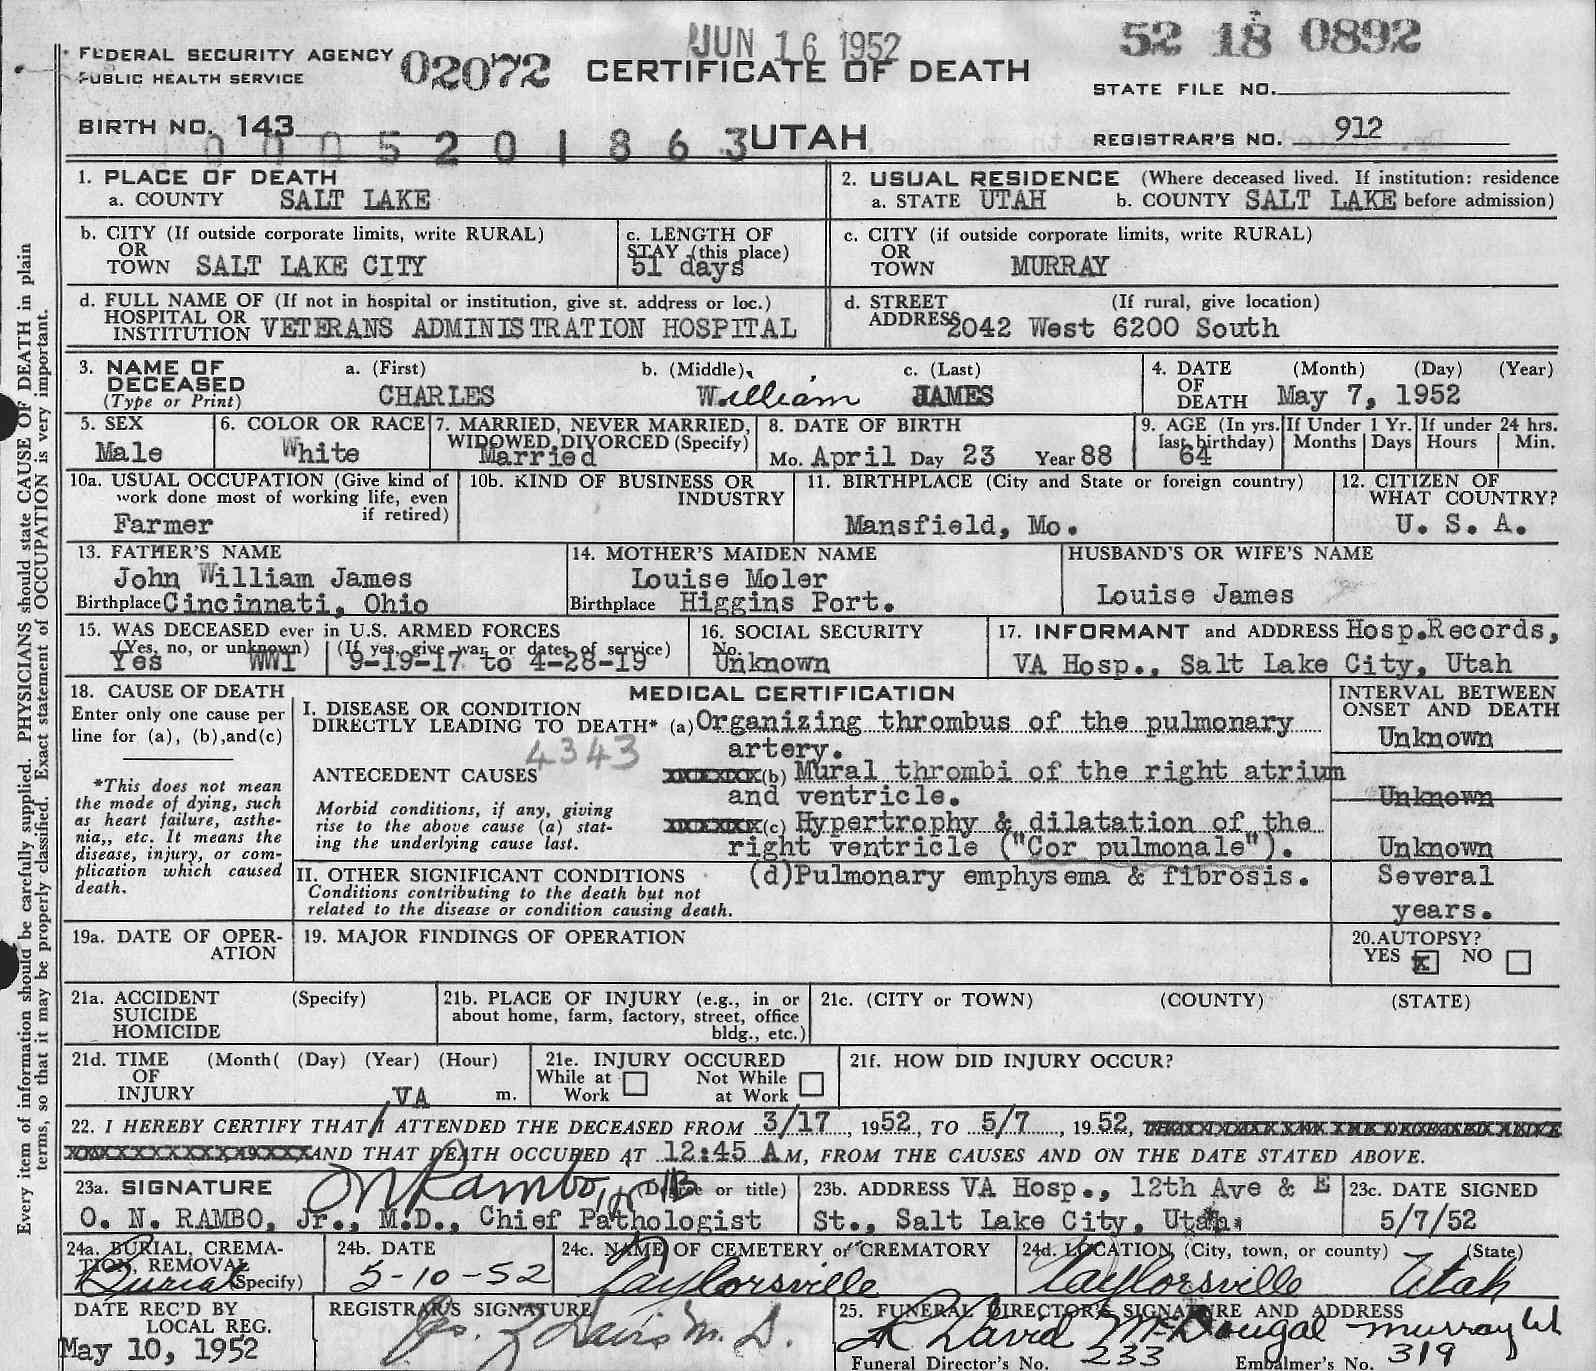 JUN 16 1952
52 18 0892
FEDERAL SECURITY AGENCY
PUBLIC HEALTH SERVICE
02072
CERTIFICATE OF DEATH
STATE FILE NO.
BIRTH NO. 143
0005201863
UTAH
REGISTRAR'S NO. 912
1. PLACE OF DEATH
a. COUNTY SALT LAKE
2. USUAL RESIDENCE (Where deceased lived. If institution: residence
a. STATE UTAH b. COUNTY SALT LAKE before admission)
b. CITY (If outside corporate limits, write RURAL)
OR
TOWN SALT LAKE CITY
c. LENGTH OF
STAY (this place)
51 days
c. CITY (if outside corporate limits, write RURAL)
OR
TOWN MURRAY
d. FULL NAME OF (If not in hospital or institution, give st. address or loc.)
HOSPITAL OR
INSTITUTION VETERANS ADMINISTRATION HOSPITAL
d. STREET (If rural, give location)
ADDRESS 2042 West 6200 South
3. NAME OF DECEASED
(Type or Print)
a. (First) b. (Middle) c. (Last)
CHARLES William JAMES
4. DATE OF DEATH (Month) (Day) (Year)
May 7, 1952
5. SEX
Male
6. COLOR OR RACE
White
7. MARRIED, NEVER MARRIED,
WIDOWED, DIVORCED (Specify)
Married
8. DATE OF BIRTH
Mo. April Day 23 Year 88
9. AGE (In yrs. last birthday)
64
If Under 1 Yr.
Months Days
If under 24 hrs.
Hours Min.
10a. USUAL OCCUPATION (Give kind of
work done most of working life, even
if retired)
Farmer
10b. KIND OF BUSINESS OR
INDUSTRY
11. BIRTHPLACE (City and State or foreign country)
Mansfield, Mo.
12. CITIZEN OF
WHAT COUNTRY?
U. S. A.
13. FATHER'S NAME
John William James
Birthplace Cincinnati, Ohio
14. MOTHER'S MAIDEN NAME
Louise Moler
Birthplace Higgins Port.
HUSBAND'S OR WIFE'S NAME
Louise James
15. WAS DECEASED ever in U.S. ARMED FORCES
(Yes, no, or unknown) (If yes, give war or dates of service)
Yes WWI 9-19-17 to 4-28-19
16. SOCIAL SECURITY
No.
Unknown
17. INFORMANT and ADDRESS Hosp.Records,
VA Hosp., Salt Lake City, Utah
18. CAUSE OF DEATH
Enter only one cause per
line for (a), (b),and(c)
*This does not mean
the mode of dying, such
as heart failure, asthe-
nia,, etc. It means the
disease, injury, or com-
plication which caused
death.
MEDICAL CERTIFICATION
INTERVAL BETWEEN
ONSET AND DEATH
I. DISEASE OR CONDITION
DIRECTLY LEADING TO DEATH* (a) Organizing thrombus of the pulmonary
artery.
Unknown
4343
ANTECEDENT CAUSES
(b) Mural thrombi of the right atrium
and ventricle.
Unknown
Morbid conditions, if any, giving
rise to the above cause (a) stat-
ing the underlying cause last.
(c) Hypertrophy & dilatation of the
right ventricle ("Cor pulmonale").
Unknown
II. OTHER SIGNIFICANT CONDITIONS
(d)Pulmonary emphysema & fibrosis.
Several
years.
Conditions contributing to the death but not
related to the disease or condition causing death.
19a. DATE OF OPER-
ATION
19. MAJOR FINDINGS OF OPERATION
20.AUTOPSY?
YES x NO
21a. ACCIDENT (Specify)
SUICIDE
HOMICIDE
21b. PLACE OF INJURY (e.g., in or
about home, farm, factory, street, office
bldg., etc.)
21c. (CITY or TOWN) (COUNTY) (STATE)
21d. TIME (Month( (Day) (Year) (Hour)
OF
INJURY m.
21e. INJURY OCCURED
While at Work Not While at Work
21f. HOW DID INJURY OCCUR?
VA
22. I HEREBY CERTIFY THAT ATTENDED THE DECEASED FROM 3/17, 1952, TO 5/7, 1952,
AND THAT DEATH OCCURED AT 12:45 AM, FROM THE CAUSES AND ON THE DATE STATED ABOVE.
23a. SIGNATURE ON Rambo, Jr (Degree or title)
O. N. RAMBO, Jr., M.D., Chief Pathologist
23b. ADDRESS VA Hosp., 12th Ave & E
St., Salt Lake City, Utah.
23c. DATE SIGNED
5/7/52
24a. BURIAL, CREMA-
TION, REMOVAL
(Specify)
Burial
24b. DATE
5-10-52
24c. NAME OF CEMETERY or CREMATORY
Taylorsville
24d. LOCATION (City, town, or county) (State)
Taylorsville Utah
DATE REC'D BY
LOCAL REG.
May 10, 1952
REGISTRAR'S SIGNATURE
Davis M. D.
25. FUNERAL DIRECTOR'S SIGNATURE AND ADDRESS
David McDougal Murray Ut
Funeral Director's No. 233 Embalmer's No. 319
Every item of information should be carefully supplied. PHYSICIANS should state CAUSE OF DEATH in plain
terms, so that it may be properly classified. Exact statement of OCCUPATION is very important.